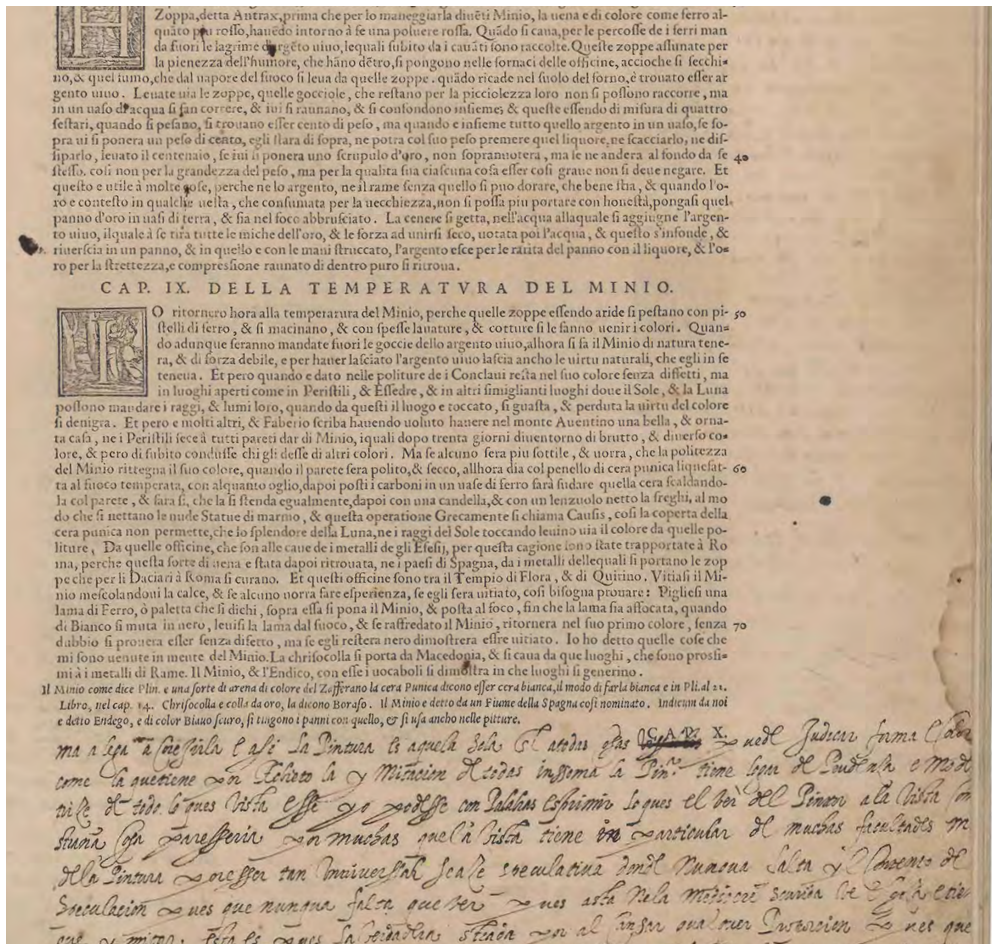 Zoppa,detta Antrax,prima che per lo maneggiarla diuēti Minio, la uena e di colore come ferro al-
quāto piu roſſo,hauēdo intorno à ſe una poluere roſſa. Quādo ſi caua,per le percoſſe de i ferri man
da fuori le lagrime d'argēto uiuo,lequali ſubito da i cauāti ſono raccolte.Queſte zoppe aſſunate per
la pienezza dell'humore, che hāno dētro,ſi pongono nelle fornaci delle officine, accioche ſi ſecchi-
no,& quel fumo,che dal uapore del fuoco ſi leua da quelle zoppe . quādo ricade nel ſuolo del forno,é trouato eſſer ar
gento uiuo . Leuate uia le zoppe, quelle gocciole , che reſtano per la picciolezza loro non ſi poſſono raccorre , ma
in un uaſo d'acqua ſi fan correre, & iui ſi raunano, & ſi confondono inſieme; & queſte eſſendo di miſura di quattro
ſeſtari, quando ſi peſano, ſi trouano eſſer cento di peſo , ma quando e inſieme tutto quello argento in un uaſo, ſe ſo-
pra ui ſi ponera un peſo di cento, egli ſtara di ſopra, ne potra col ſuo peſo premere quel liquore, ne ſcacciarlo, ne diſ-
ſiparlo , leuato il centenaio , ſe iui ſi ponera uno ſcrupulo d'oro , non ſopranuotera , ma ſe ne andera al fondo da ſe 40
ſteſſo. coſi non per la grandezza del peſo , ma per la qualita ſua ciaſcuna coſa eſſer coſi graue non ſi deue negare. Et
queſto e utile à molte coſe, perche ne lo argento, ne il rame ſenza quello ſi puo dorare, che bene ſtia , & quando l'o-
ro e conteſto in qualche ueſta , che conſumata per la uecchiezza,non ſi poſſa piu portare con honeſtà,pongaſi quel
panno d'oro in uaſi di terra , & ſia nel foco abbruſciato . La cenere ſi getta, nell'acqua allaquale ſi aggiugne l'argen-
to uiuo, ilquale à ſe tira tutte le miche dell'oro, & le forza ad unirſi ſeco, uotata poi l'acqua , & queſto s'infonde , &
riuerſcia in un panno, & in quello e con le mani ſtruccato, l'argento eſce per le rarita del panno con il liquore, & l'o-
ro per la ſtrettezza,e compreſſione raunato di dentro puro ſi ritroua .
CAP. IX. DELLA TEMPERATVRA DEL MINIO.
IO ritornero hora alla temperatura del Minio, perche quelle zoppe eſſendo aride ſi peſtano con pi- 50
ſtelli di ferro , & ſi macinano , & con ſpeſſe lauature , & cotture ſi le fanno uenir i colori . Quan-
do adunque ſeranno mandate fuori le goccie dello argento uiuo,alhora ſi fà il Minio di natura tene-
ra, & di forza debile, e per hauer laſciato l'argento uiuo laſcia ancho le uirtu naturali, che egli in ſe
teneua . Et pero quando e dato nelle politure de i Conclaui reſta nel ſuo colore ſenza diffetti , ma
in luoghi aperti come in Periſtili , & Eſſedre , & in altri ſimiglianti luoghi doue il Sole , & la Luna
poſſono mandare i raggi, & lumi loro, quando da queſti il luogo e toccato, ſi guaſta , & perduta la uirtu del colore
ſi denigra. Et pero e molti altri, & Faberio ſcriba hauendo uoluto hauere nel monte Auentino una bella , & orna-
ta caſa , ne i Periſtili fece à tutti pareti dar di Minio, iquali dopo trenta giorni diuentorno di brutto , & diuerſo co-
lore, & pero di ſubito conduſſe chi gli deſſe di altri colori . Ma ſe alcuno ſera piu ſottile , & uorra, che la politezza
del Minio rittegna il ſuo colore, quando il parete ſera polito,& ſecco, allhora dia col penello di cera punica liquefat- 60
ta al fuoco temperata, con alquanto oglio,dapoi poſti i carboni in un uaſe di ferro farà ſudare quella cera ſcaldando-
la col parete , & fara ſi, che la ſi ſtenda egualmente,dapoi con una candella,& con un lenzuolo netto la freghi, al mo
do che ſi nettano le nude Statue di marmo , & queſta operatione Grecamente ſi chiama Cauſis, coſi la coperta della
cera punica non permette,che lo ſplendore della Luna,ne i raggi del Sole toccando leuino uia il colore da quelle po-
liture , Da quelle officine, che ſon alle caue de i metalli de gli Efeſij, per queſta cagione ſono ſtate trapportate à Ro
ma, perche queſta ſorte di uena e ſtata dapoi ritrouata, ne i paeſi di Spagna, da i metalli dellequali ſi portano le zop
pe che per li Daciari à Roma ſi curano. Et queſti officine ſono tra il Tempio di Flora , & di Quirino. Vitiaſi il Mi-
nio meſcolandoui la calce, & ſe alcuno uorra fare eſperienza, ſe egli ſera uitiato, coſi biſogna prouare: Piglieſi una
lama di Ferro, ò paletta che ſi dichi , ſopra eſſa ſi pona il Minio, & poſta al foco , fin che la lama ſia affocata, quando
di Bianco ſi muta in nero, leuiſi la lama dal fuoco , & ſe raffredato il Minio , ritornera nel ſuo primo colore, ſenza 70
dubbio ſi prouera eſſer ſenza difetto , ma ſe egli reſtera nero dimoſtrera eſſre uitiato. Io ho detto quelle coſe che
mi ſono uenute in mente del Minio.La chriſocolla ſi porta da Macedonia, & ſi caua da que luoghi , che ſono proſſi-
mi à i metalli di Rame. Il Minio, & l'Endico, con eſſe i uocaboli ſi dimoſtra in che luoghi ſi generino .
Il Minio come dice Plin. e una ſorte di arena di colore del Zafferano la cera Punica dicono eſſer cera bianca,il modo di farla bianca e in Pli.al 21.
Libro, nel cap. 14. Chriſocolla e colla da oro, la dicono Boraſo. Il Minio e detto da un Fiume della Spagna coſi nominato. Indicum da noi
e detto Endego, e di color Biauo ſcuro, ſi tingono i panni con quello, & ſi uſa ancho nelle pitture.
CAP. X.
la Pintura es aquela sola puede Judicar forma e color
como la que tiene por la y Mitacion de todas la tiene de e
de todo lo ques vista esse yo podesse con Palabras esprimir lo ques el ver del Pintor a la vista
cosa por muchas que la vista tiene particular de muchas facultades
de la Pintura por esser tan Universal se a le speculativa donde nunqua falta y el contento de
speculacion pues que nunqua falta que ver pues
pues que